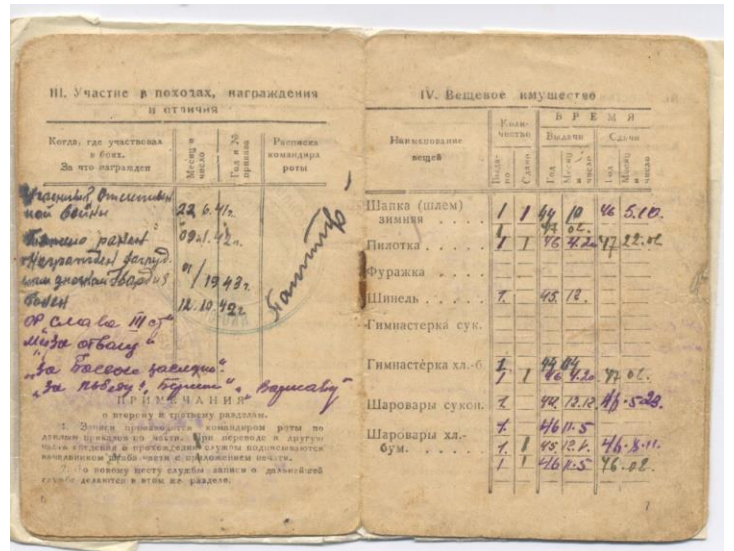 III. Участие в походах, награждения
и отличия
Когда, где участвовал
в боях.
За что награжден
Месяц и
число
Год и №
приказа
Расписка
командира
роты
Отечествен
ной войны 22 6. 41г.
ранен
Награжден нагруд
ным значком Гвардия 1943г.
болен 12. 10. 42г.
Ор Слава III ст"
М за отвагу"
"За боевые заслуги".
"За победу", Берлин", Варшаву"
ПРИМЕЧАНИЯ
о второму и третьему разделам.
1. Записи производятся командиром роты по
данным приказов по части. При переводе в другую
часть сведения о прохождении службы подписываются
начальником штаба части с приложением печати.
2. По новому месту службы записи о дальнейшей
службе делаются в этом же разделе.
6
IV. Вещевое имущество
Наименование
вещей
Коли-
чество
ВРЕМЯ
Выдачи
Сдачи
Выда-
но
Сдано
Год
Месяц
и
число
Год
Месяц
и
число
Шапка (шлем)
зимняя . . . . 1 1 44 10 46 5.10.
1 47 02.
Пилотка . . . . . 1 1 46 4.20 47 22.02
Фуражка . . . .
Шинель . . . . . 1. 45. 12.
Гимнастерка сук.
Гимнастёрка хл.-б. 1. 44 04
1 1 46 4.20 47 02.
Шаровары сукон. 1 44. 12.12. 46.5-23.
1. 46 11.5
Шаровары хл.-
бум. . . . . . 1. 1 45. 46.
1 1 46 11.5 46.02.
7